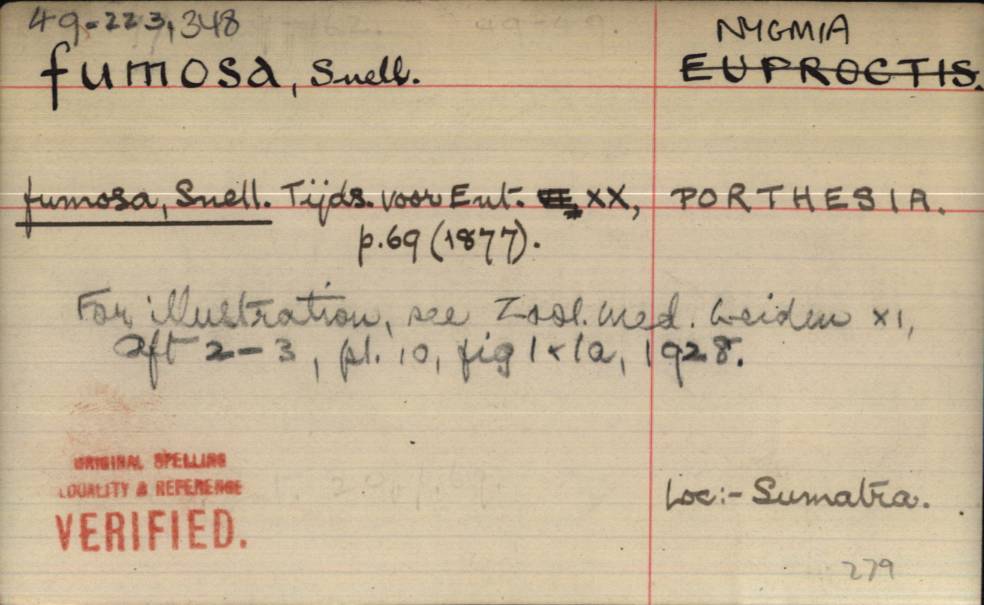 49-223,348
NYGMIA
fumosa, Snell. EUPROCTIS.
fumosa, Snell. Tijds. voor Ent. XX, PORTHESIA.
p.69 (1877).
For illustration, see Zool. Med. Leiden XI,
Aft 2-3, pl. 10, fig 1 & 1a, 1928.
ORIGINAL SPELLING
LOCALITY & REFERENCE
VERIFIED.
Loc:- Sumatra.
279